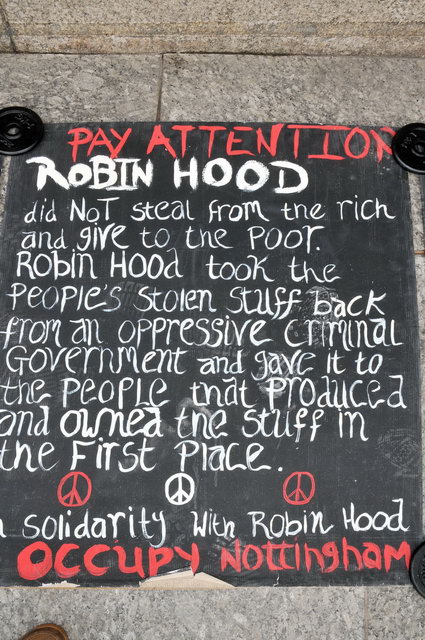 PAY ATTENTION
ROBIN HOOD
did NOT steal from the rich
and give to the POOR.
Robin Hood took the
PEOPLE'S stolen stuff back
from an oppressive criminal
Government and gave it to
the PEOPLE that Produced
and owned the stuff in
the First Place.
solidarity With Robin Hood
OCCUPY Nottingham